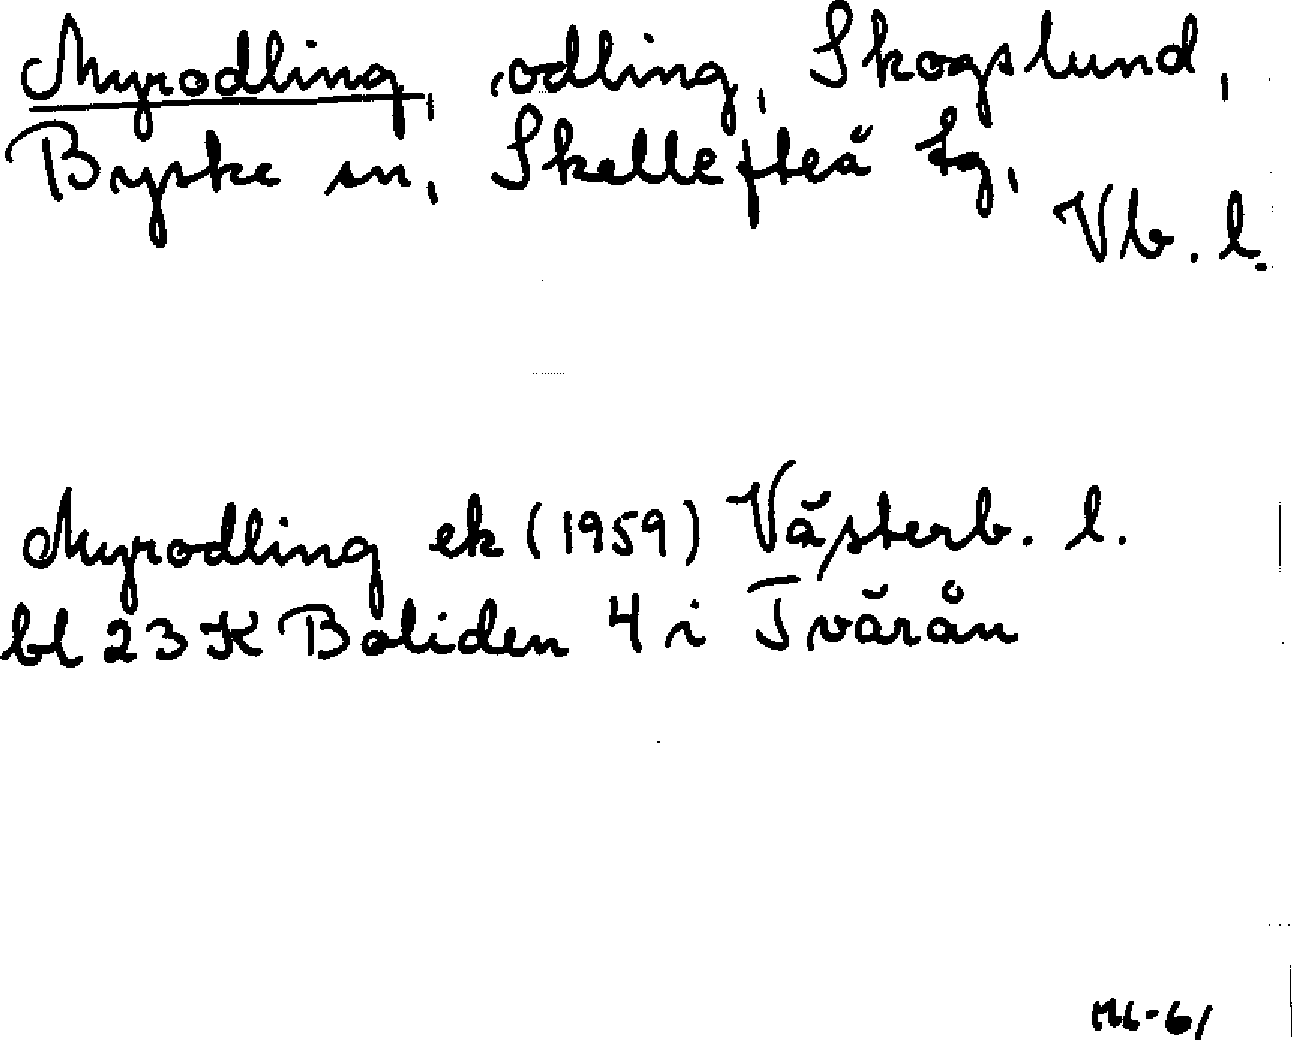 Myrodling, odling, Skogslund,
Byske sn, Skellefteå tg,
Vb. l.
Myrodling ek (1959) Västerb. l.
bl 23 K Boliden 4 i Tvärån
ML-61